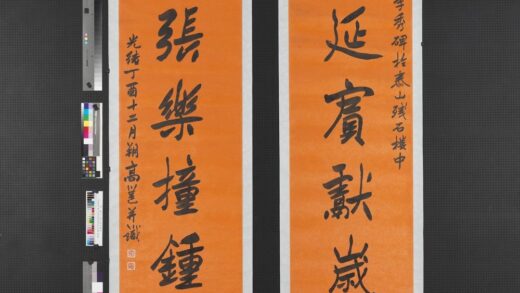 李秀碑於泰山殘石樓中
延賓獻歲
張樂撞鍾
光緒丁酉十二月朔高邕并識